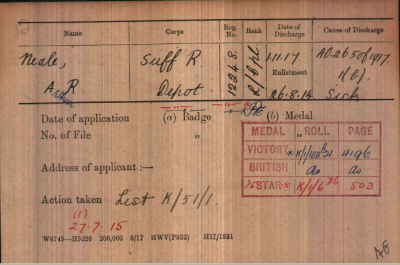 Name Corps Reg. No. Rank Date of Discharge Cause of Discharge
Neale, Suff R. 12248. A/Cpl 1.1.17. AO.265 of 1917.
Enlistment 1(c)
A. Arthur R. Depot. 26.8.14 Sick
Date of application (a) Badge (b) Medal
No. of File "
MEDAL ROLL PAGE
VICTORY K/1/103 B21 4196
Address of applicant :—
BRITISH do do
15 STAR K/1/6 503
Action taken List K/51/1.
(1)
27.7.15
W6749—H5226 200,000 8/17 HWV(P932) H17/1831